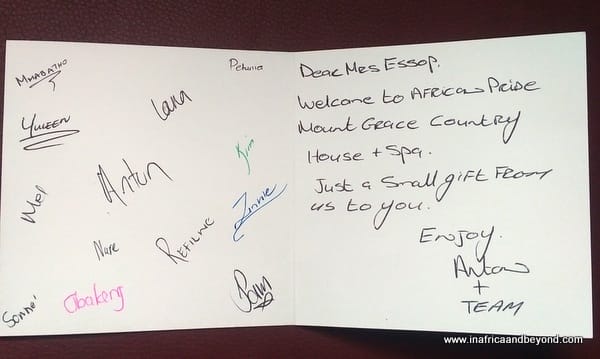 Mmabatho
Petunia
Lana
Yuleen
Kim
Anton
Mel
Zinnie
Refilwe
Nare
Obakeng
Sonnei
Dear Mrs Essop.
Welcome to African Pride
Mount Grace Country
House + Spa.
Just a small gift from
us to you.
Enjoy.
Anton
+
TEAM
www.inafricaandbeyond.com